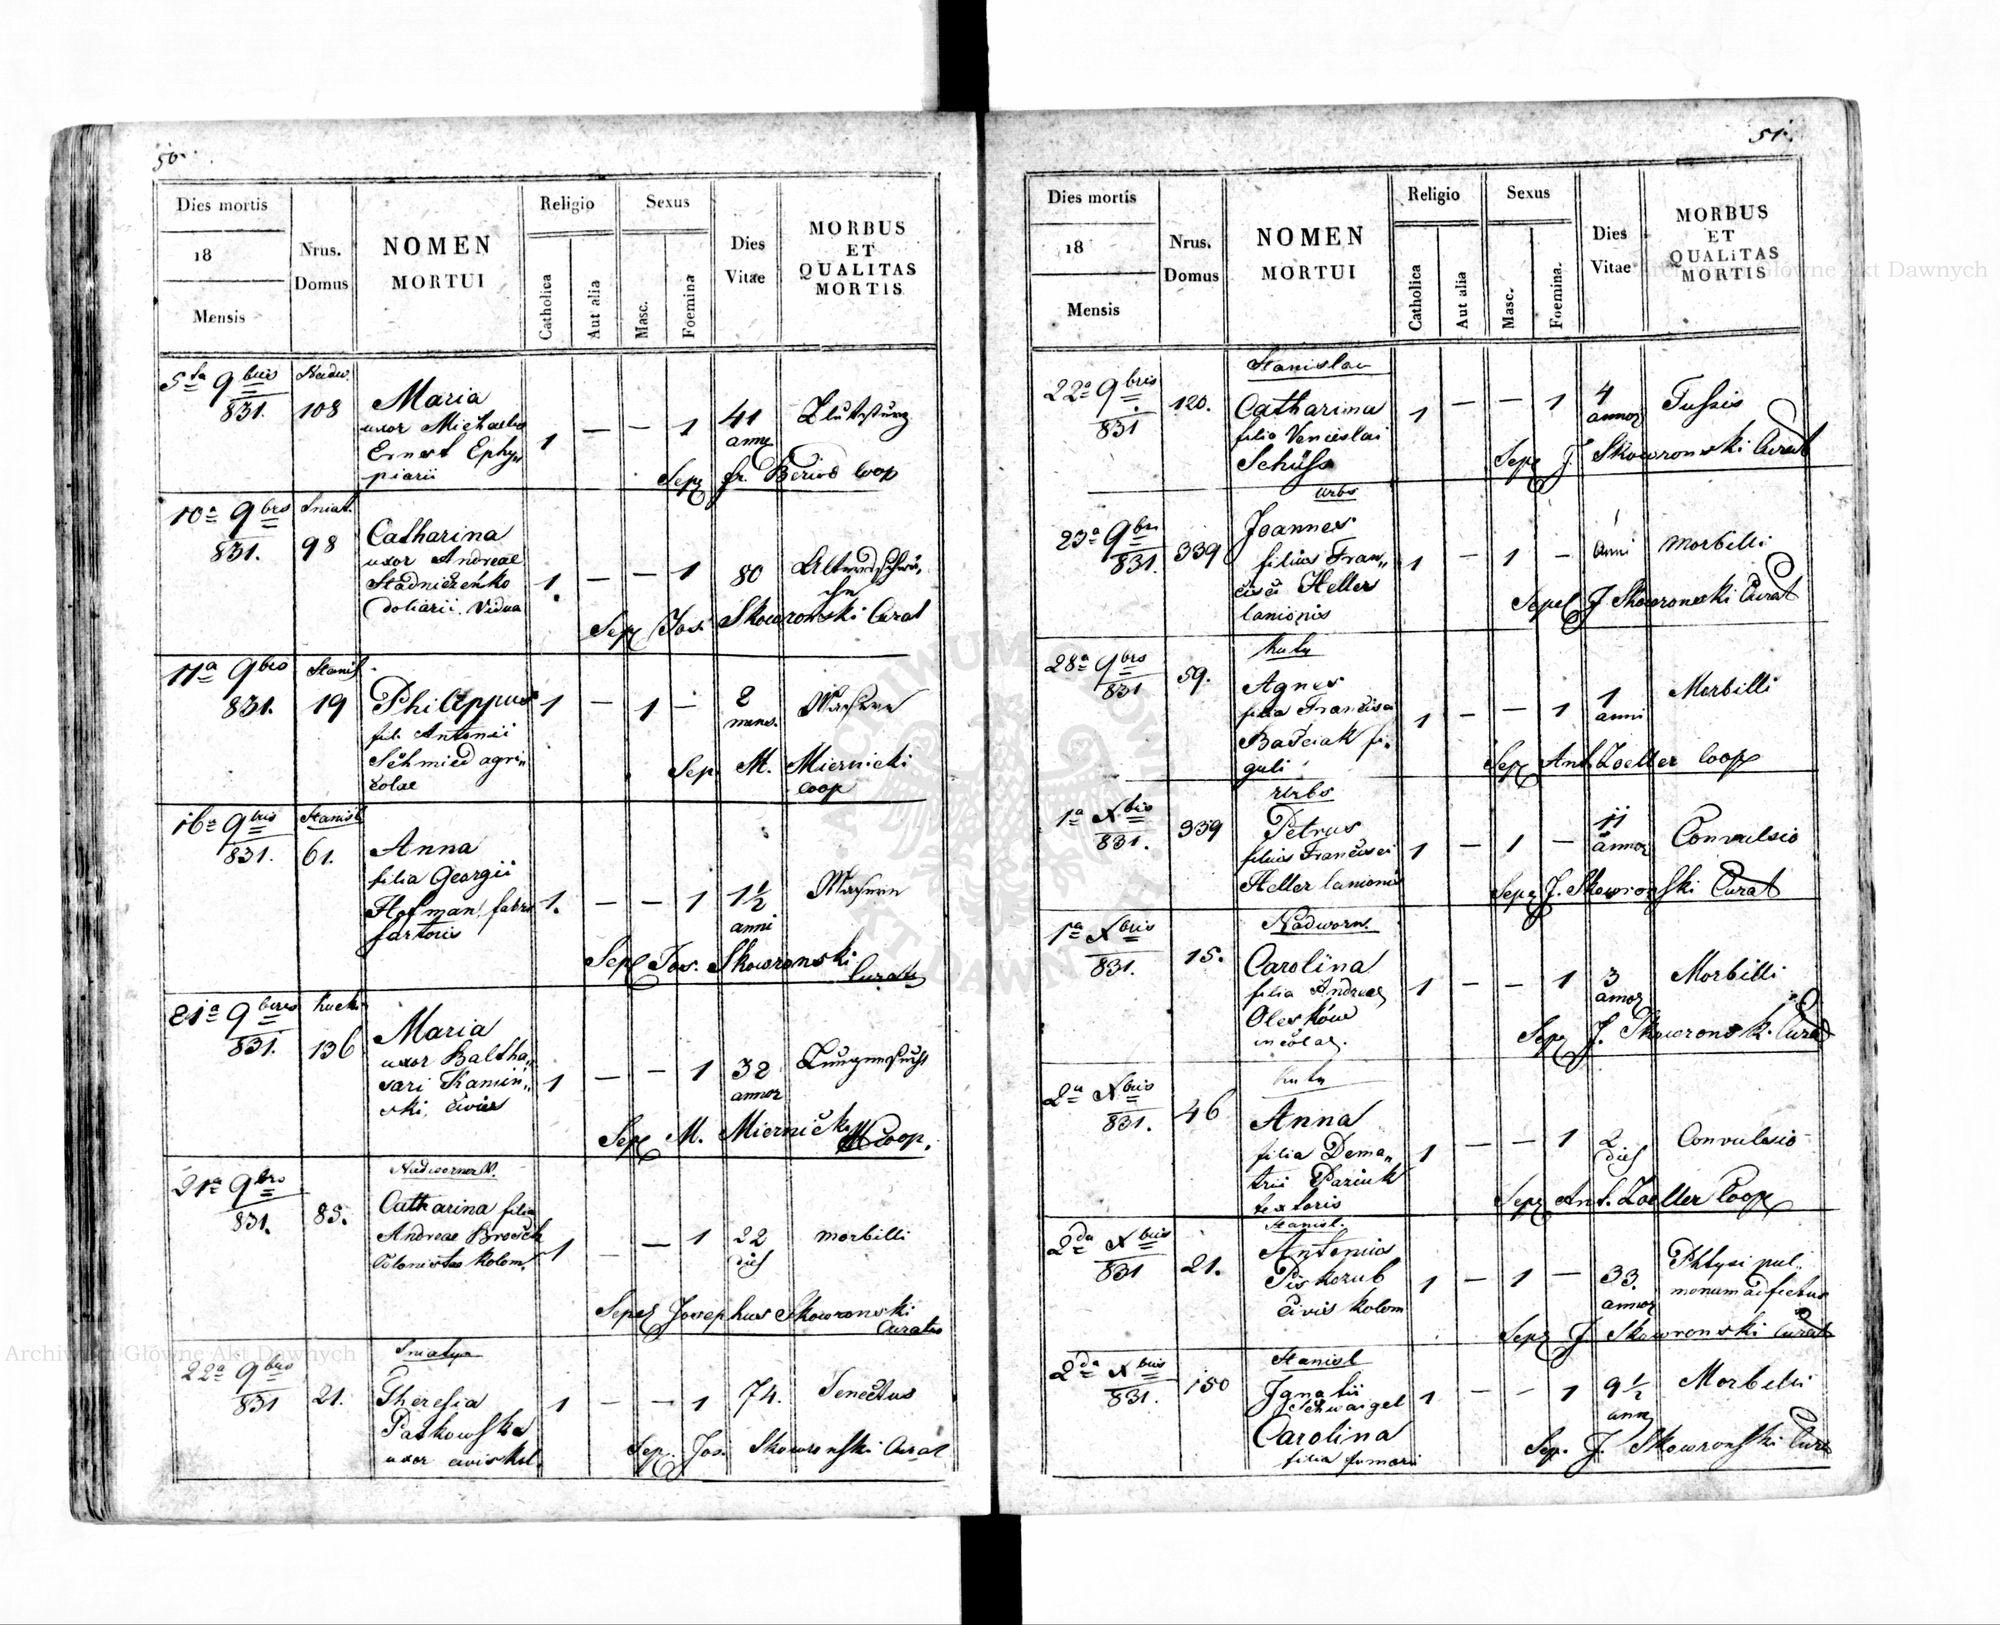 50.
Dies mortis
18
Mensis
Nrus.
Domus
NOMEN
MORTUI
Religio
Catholica
Aut alia
Sexus
Masc.
Foemina
Dies
Vitae
MORBUS
ET
QUALITAS
MORTIS
5ta 9bris
831.
Nadw.
108
Maria
uxor Michaelis
Ernest Ephyp
piarii
1 — — 1
41
Sep fr. Coop
10a 9bris
831.
Sniat.
98
Catharina
uxor Andreae
doliarii. Vidua
1. — — 1
80
Sep Jos. Skowronski Curat
11a 9bris
831.
Stanisl.
19
Philippus
fil. Antonii
Schmied agri„
colae
1 — 1 —
2
mens.
Masern
Sep. M. Miernicki
Coop
16a 9bris
831.
Stanisl
61.
Anna
filia Georgii
Hofman, fabri
sartoris
1. — — 1
1½
anni
Masern
Sep Jos. Skowronski
Curat
21a 9bris
831.
136
Maria
uxor Baltha„
sari Kamin„
ski, civis
1 — — 1
32
annor
Lungensucht
Sep M. Miernicki Coop.
21a 9bris
831.
85.
Catharina filia
Andreae
Colonistae Kolom.
1 — — 1
22
dies
morbilli
Sepel Josephus Skowronski
Curatus
22a 9bris
831
21.
Sniatyn
Theresia
Paskowska
uxor civis Kol.
1 — — 1
74.
Senectus
Sep. Jos. Skowronski Curat
51.
Dies mortis
18
Mensis
Nrus.
Domus
NOMEN
MORTUI
Religio
Catholica
Aut alia
Sexus
Masc.
Foemina.
Dies
Vitae
MORBUS
ET
QUALITAS
MORTIS
22a 9bris
831
120.
Stanislau
Catharina
filia Venceslai
Schüss
1 — — 1
4
annor
Tussis
Sep J. Skowronski Curat
23a 9bris
831.
339
Urbs
Joannes
filius Fran„
cisci Heller
lanionis
1 — 1 —
1
anni
Morbilli
Sepel J Skowronski Curat
28a 9bris
831
59.
Kuty
Agnes
filia Francisci
Baściak fi„
guli
1 — — 1
1
anni
Morbilli
Sep Ant. Zoeller Coop
1a Xbris
831.
339
Urbs
Petrus
filius Francisci
Heller lanionis
1 — 1 —
11
annor
Convulsio
Sep J. Skowronski Curat
1a Xbris
831.
15.
Nadworn.
Carolina
filia Andreae
Oleskow
incolae.
1 — — 1
3
annor
Morbilli
Sep J. Skowronsk. Curat
2a Xbris
831.
46
Kuty
Anna
filia Deme„
trii Pariuk
textoris
1 — — 1
2
dies
Convulsio
Sep Ant. Zoeller Coop
2da Xbris
831
21.
Stanisl.
Antonius
Piskozub
Civis Kolom
1 — 1 —
33
annor
Phtysi pul„
monum
Sep J. Skowronski Curat
2da Xbris
831.
150
Stanisl
Ignatii
Schwaigel
Carolina
filia
1 — — 1
9½
ann
Morbilli
Sep. J. Skowronski Curt
Archiwum Główne Akt Dawnych
Archiwum Główne Akt Dawnych
ARCHIWUM GŁÓWNE
AKT DAWNYCH